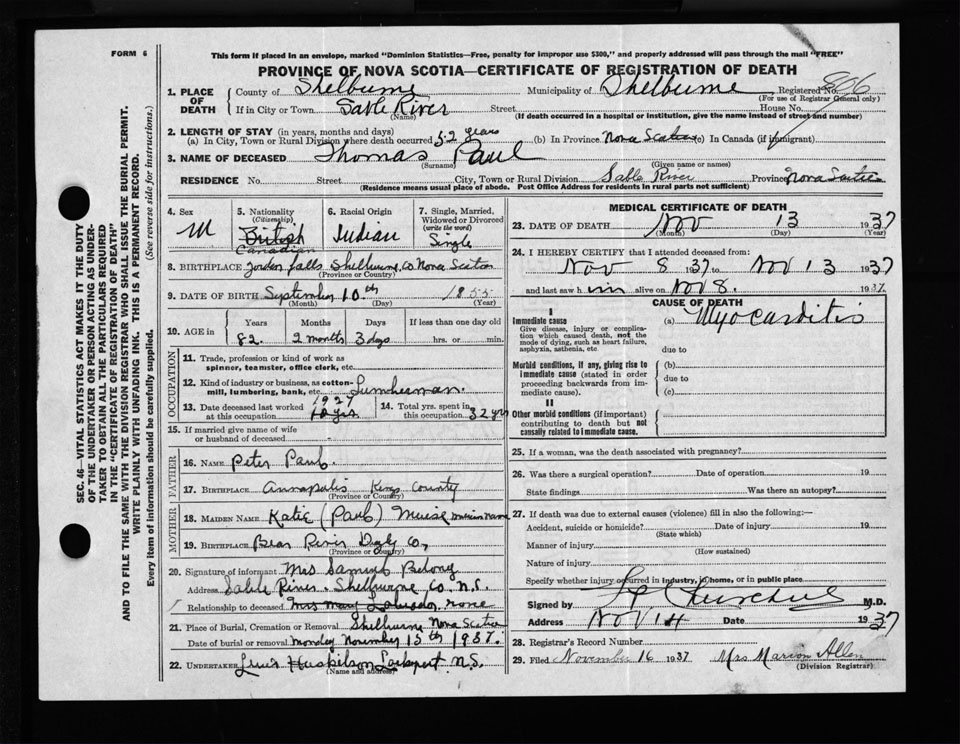 FORM 6
This form if placed in an envelope, marked "Dominion Statistics—Free, penalty for improper use $300," and properly addressed will pass through the mail "FREE"
PROVINCE OF NOVA SCOTIA—CERTIFICATE OF REGISTRATION OF DEATH
1. PLACE OF DEATH County of Shelburne Municipality of Shelburne Registered No. 986
(For use of Registrar General only)
If in City or Town Sable River Street House No.
(Name) (If death occurred in a hospital or institution, give its name instead of street and number)
2. LENGTH OF STAY (in years, months and days)
(a) In City, Town or Rural Division where death occurred 52 years (b) In Province Nova Scotia (c) In Canada (if immigrant)
3. NAME OF DECEASED Thomas Paul
(Surname) (Given name or names)
RESIDENCE No. Street City, Town or Rural Division Sable River Province Nova Scotia
(Residence means usual place of abode. Post Office Address for residents in rural parts not sufficient)
SEC. 46—VITAL STATISTICS ACT MAKES IT THE DUTY
OF THE UNDERTAKER OR PERSON ACTING AS UNDER-
TAKER TO OBTAIN ALL THE PARTICULARS REQUIRED
IN THE "CERTIFICATE OF REGISTRATION OF DEATH"
AND TO FILE THE SAME WITH THE DIVISION REGISTRAR WHO SHALL ISSUE THE BURIAL PERMIT.
WRITE PLAINLY WITH UNFADING INK. THIS IS A PERMANENT RECORD.
Every item of information should be carefully supplied. (See reverse side for instructions.)
4. Sex M
5. Nationality (Citizenship) British Canadian
6. Racial Origin Indian
7. Single, Married, Widowed or Divorced (write the word) Single
8. BIRTHPLACE Jordan Falls Shelburne Co Nova Scotia
(Province or Country)
9. DATE OF BIRTH September 10th 1855
(Month) (Day) (Year)
10. AGE in Years Months Days If less than one day old
82. 2 months 3 days hrs. or min.
OCCUPATION
11. Trade, profession or kind of work as spinner, teamster, office clerk, etc.
12. Kind of industry or business, as cotton-mill, lumbering, bank, etc. Lumberman.
13. Date deceased last worked at this occupation 1927 10 yrs
14. Total yrs. spent in this occupation 32 yrs
15. If married give name of wife or husband of deceased
FATHER
16. NAME Peter Paul.
17. BIRTHPLACE Annapolis Kings County
(Province or Country)
MOTHER
18. MAIDEN NAME Katie (Paul) Meuse
19. BIRTHPLACE Bear River Digby Co,
(Province or Country)
20. Signature of informant Mrs Samuel
Address Sable River. Shelburne Co N.S.
Relationship to deceased Mrs Mary Labrador none
21. Place of Burial, Cremation or Removal Shelburne Nova Scotia
Date of burial or removal Monday November 15th 1937.
22. UNDERTAKER Huskilson Lockeport N.S.
(Name and address)
MEDICAL CERTIFICATE OF DEATH
23. DATE OF DEATH Nov 13 1937
(Month) (Day) (Year)
24. I HEREBY CERTIFY that I attended deceased from:
Nov 8 1937 to Nov 13 1937
and last saw him alive on Nov 8. 1937.
CAUSE OF DEATH
I
Immediate cause (a) Myocarditis
Give disease, injury or complication which caused death, not the mode of dying, such as heart failure, asphyxia, asthenia, etc
due to
Morbid conditions, if any, giving rise to immediate cause (stated in order proceeding backwards from immediate cause). (b)
due to
(c)
II
Other morbid conditions (if important) contributing to death but not causally related to immediate cause.
25. If a woman, was the death associated with pregnancy?
26. Was there a surgical operation? Date of operation 19
State findings Was there an autopsy?
27. If death was due to external causes (violence) fill in also the following:—
Accident, suicide or homicide? Date of injury 19
(State which)
Manner of injury
(How sustained)
Nature of injury
Specify whether injury occurred in industry, in home, or in public place
Signed by Churchill M.D.
Address Nov 14 Date 1937
28. Registrar's Record Number
29. Filed November 16 1937 Mrs Marion Allen
(Division Registrar)